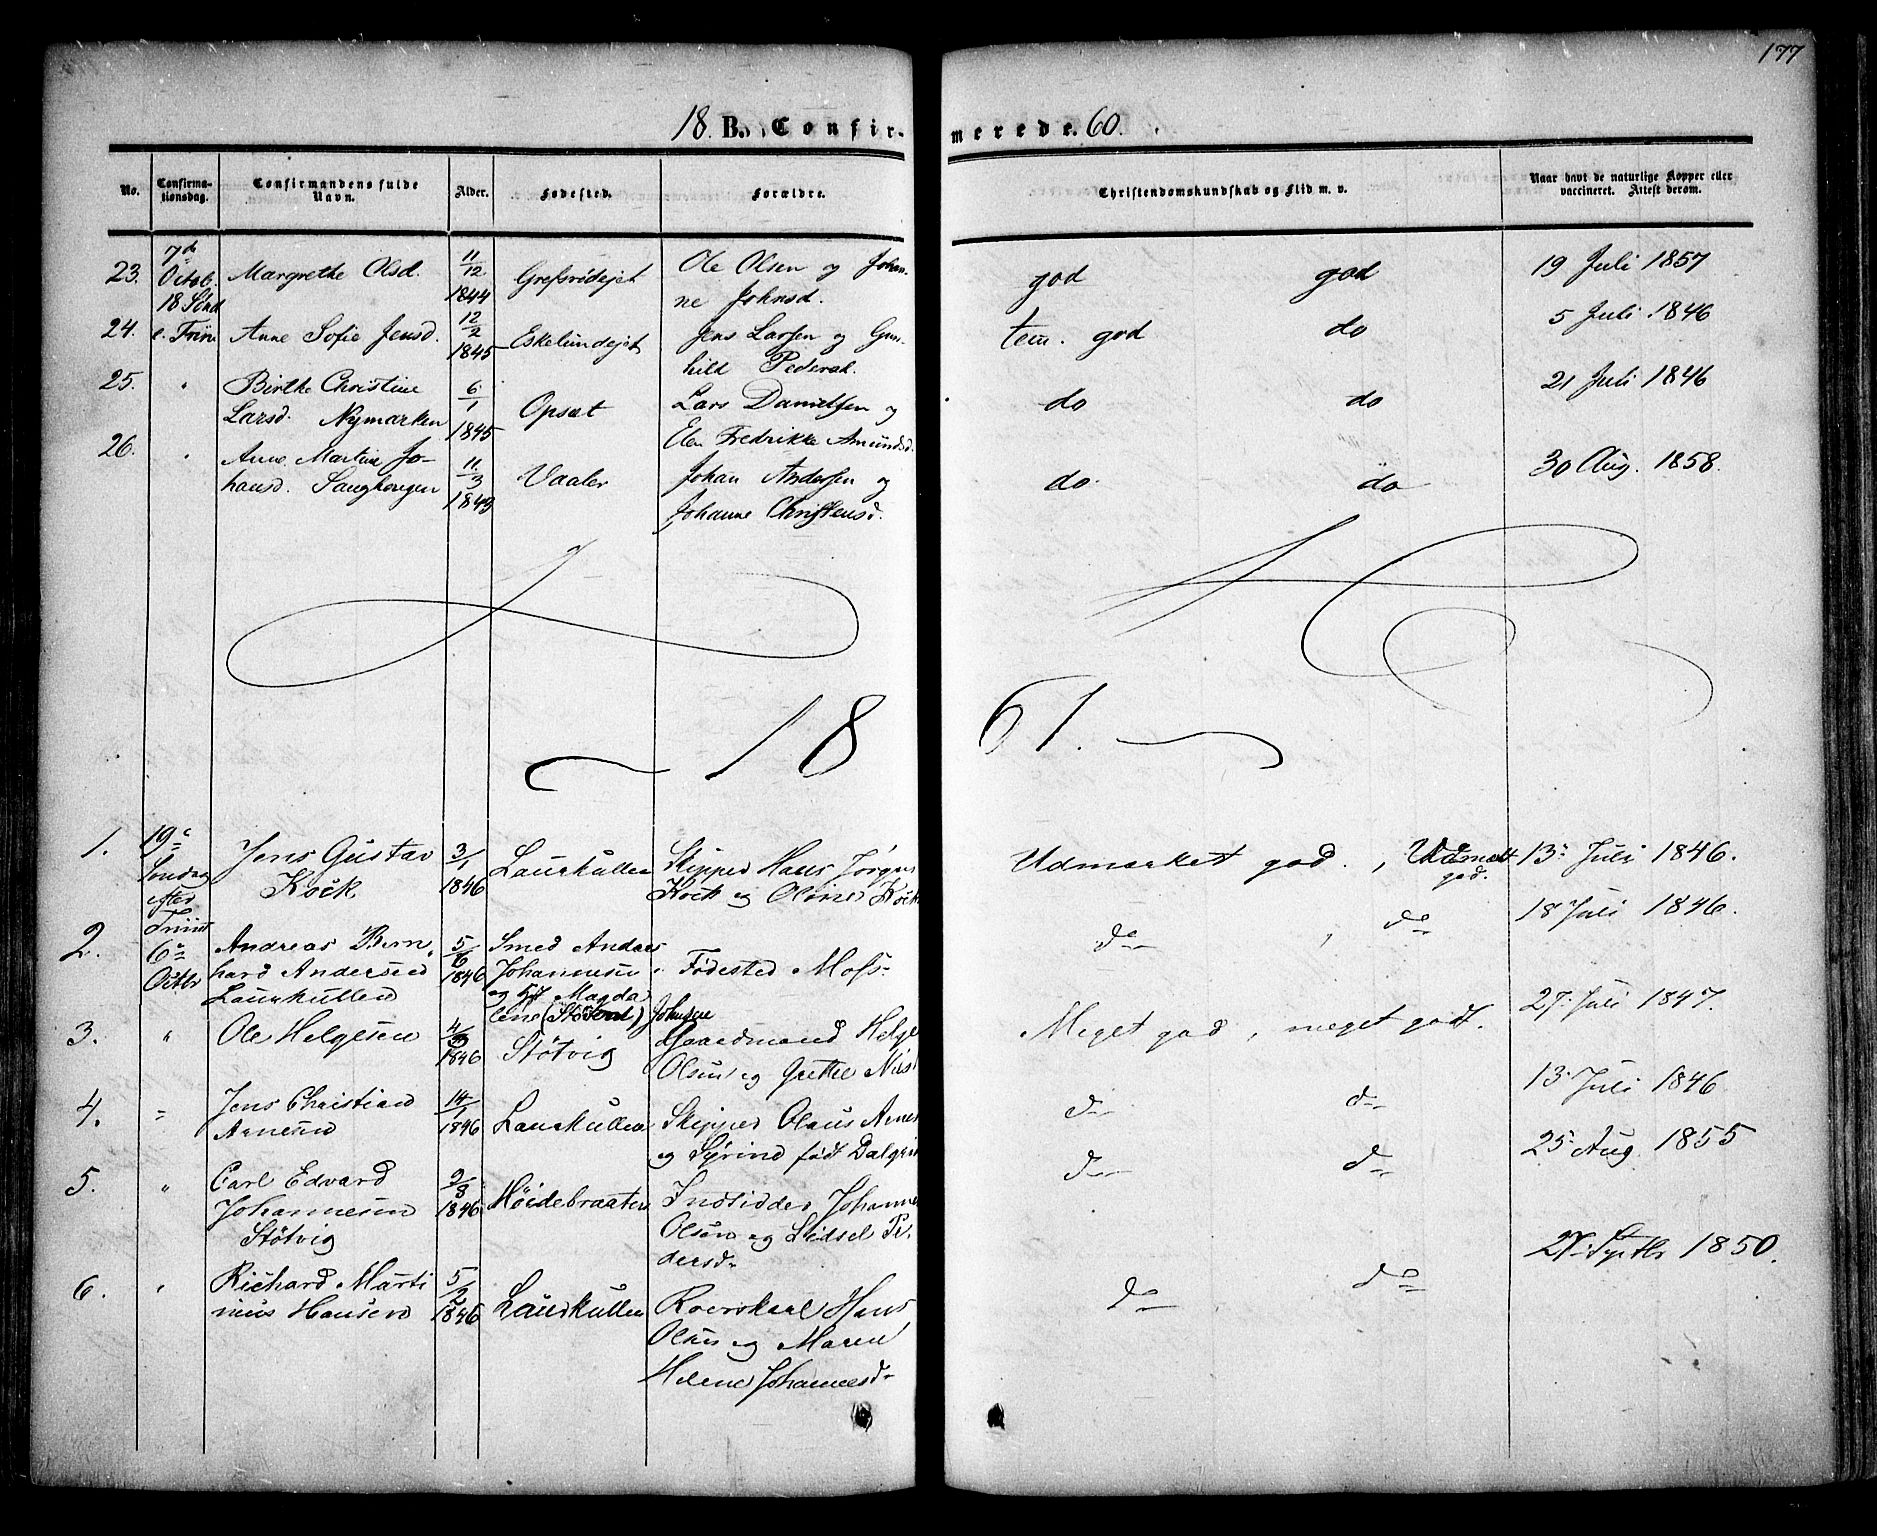 177
18 B. Confirmerede. 60.
No. Confirmationsdag. Confirmandens fulde Navn. Alder. Fødested. Forældre. Christendomskundskab og Flid m. v. Naar havt de naturlige Kopper eller vaccineret. Attest derom.
23. 7de Octob. 18 Sønd Margrethe Olsd. 11/12 1844 Grefsrödejet Ole Olsen og Johan-
ne Johnsd. god god 19 Juli 1857
24. e. Trin Anne Sofie Jensd. 12/2 1845 Eskelundejet Jens Larsen og Gun-
hild Pedersd. tem. god do 5 Juli 1846
25. " Birthe Christine
Larsd. Nymarken 6/1 1845 Opsæt Lars Danielsen og
Elen Fredrikke Amundsd. do do 21 Juli 1846
26. " Anne Martine Jo-
hansd. 11/3 1843 Vaaler Johan Andersen og
Johanne Christensd. do do 30 Aug. 1858.
18 61.
1. 19de Søndag efter Trinit 6te Octbr Jens Gustav
Kock 3/1 1846 Laurkullen Skipper Hans Jørgen
Kock og Oline Kock Udmærket god. , Udmærket god. 13. Juli 1846.
2. Andreas Bern-
hard Andersen
Laurkullen 5/6 1846 Smed Andreas
Johannesen
og Magda
lene (Støtvig) Johnsen Fødested Moss- do , do 18 Juli 1846.
3. " Ole Helgesen 4/3 1846 Støtvig Gaardmand Helge
Olsen og Grethe Niels Meget god, meget godt. 27. Juli 1847.
4. " Jens Christian
Arnesen 14/1 1846 Laurkullen Skipper Olaus Arnes
og Syrine født Dalgren do do 13. Juli 1846
5. " Carl Edvard
Johannesen
Støtvig 2/8 1846 Høidebraaten Indsidder Johannes
Olsen og Sidsel Pe-
dersd. do do 25. Aug. 1855
6. " Richard Marti
nius Hansen 5/2 1846 Laurkullen Roerskarl Hans
Olsen og Maren
Helene Johannesd. do do 27. Septbr 1850.